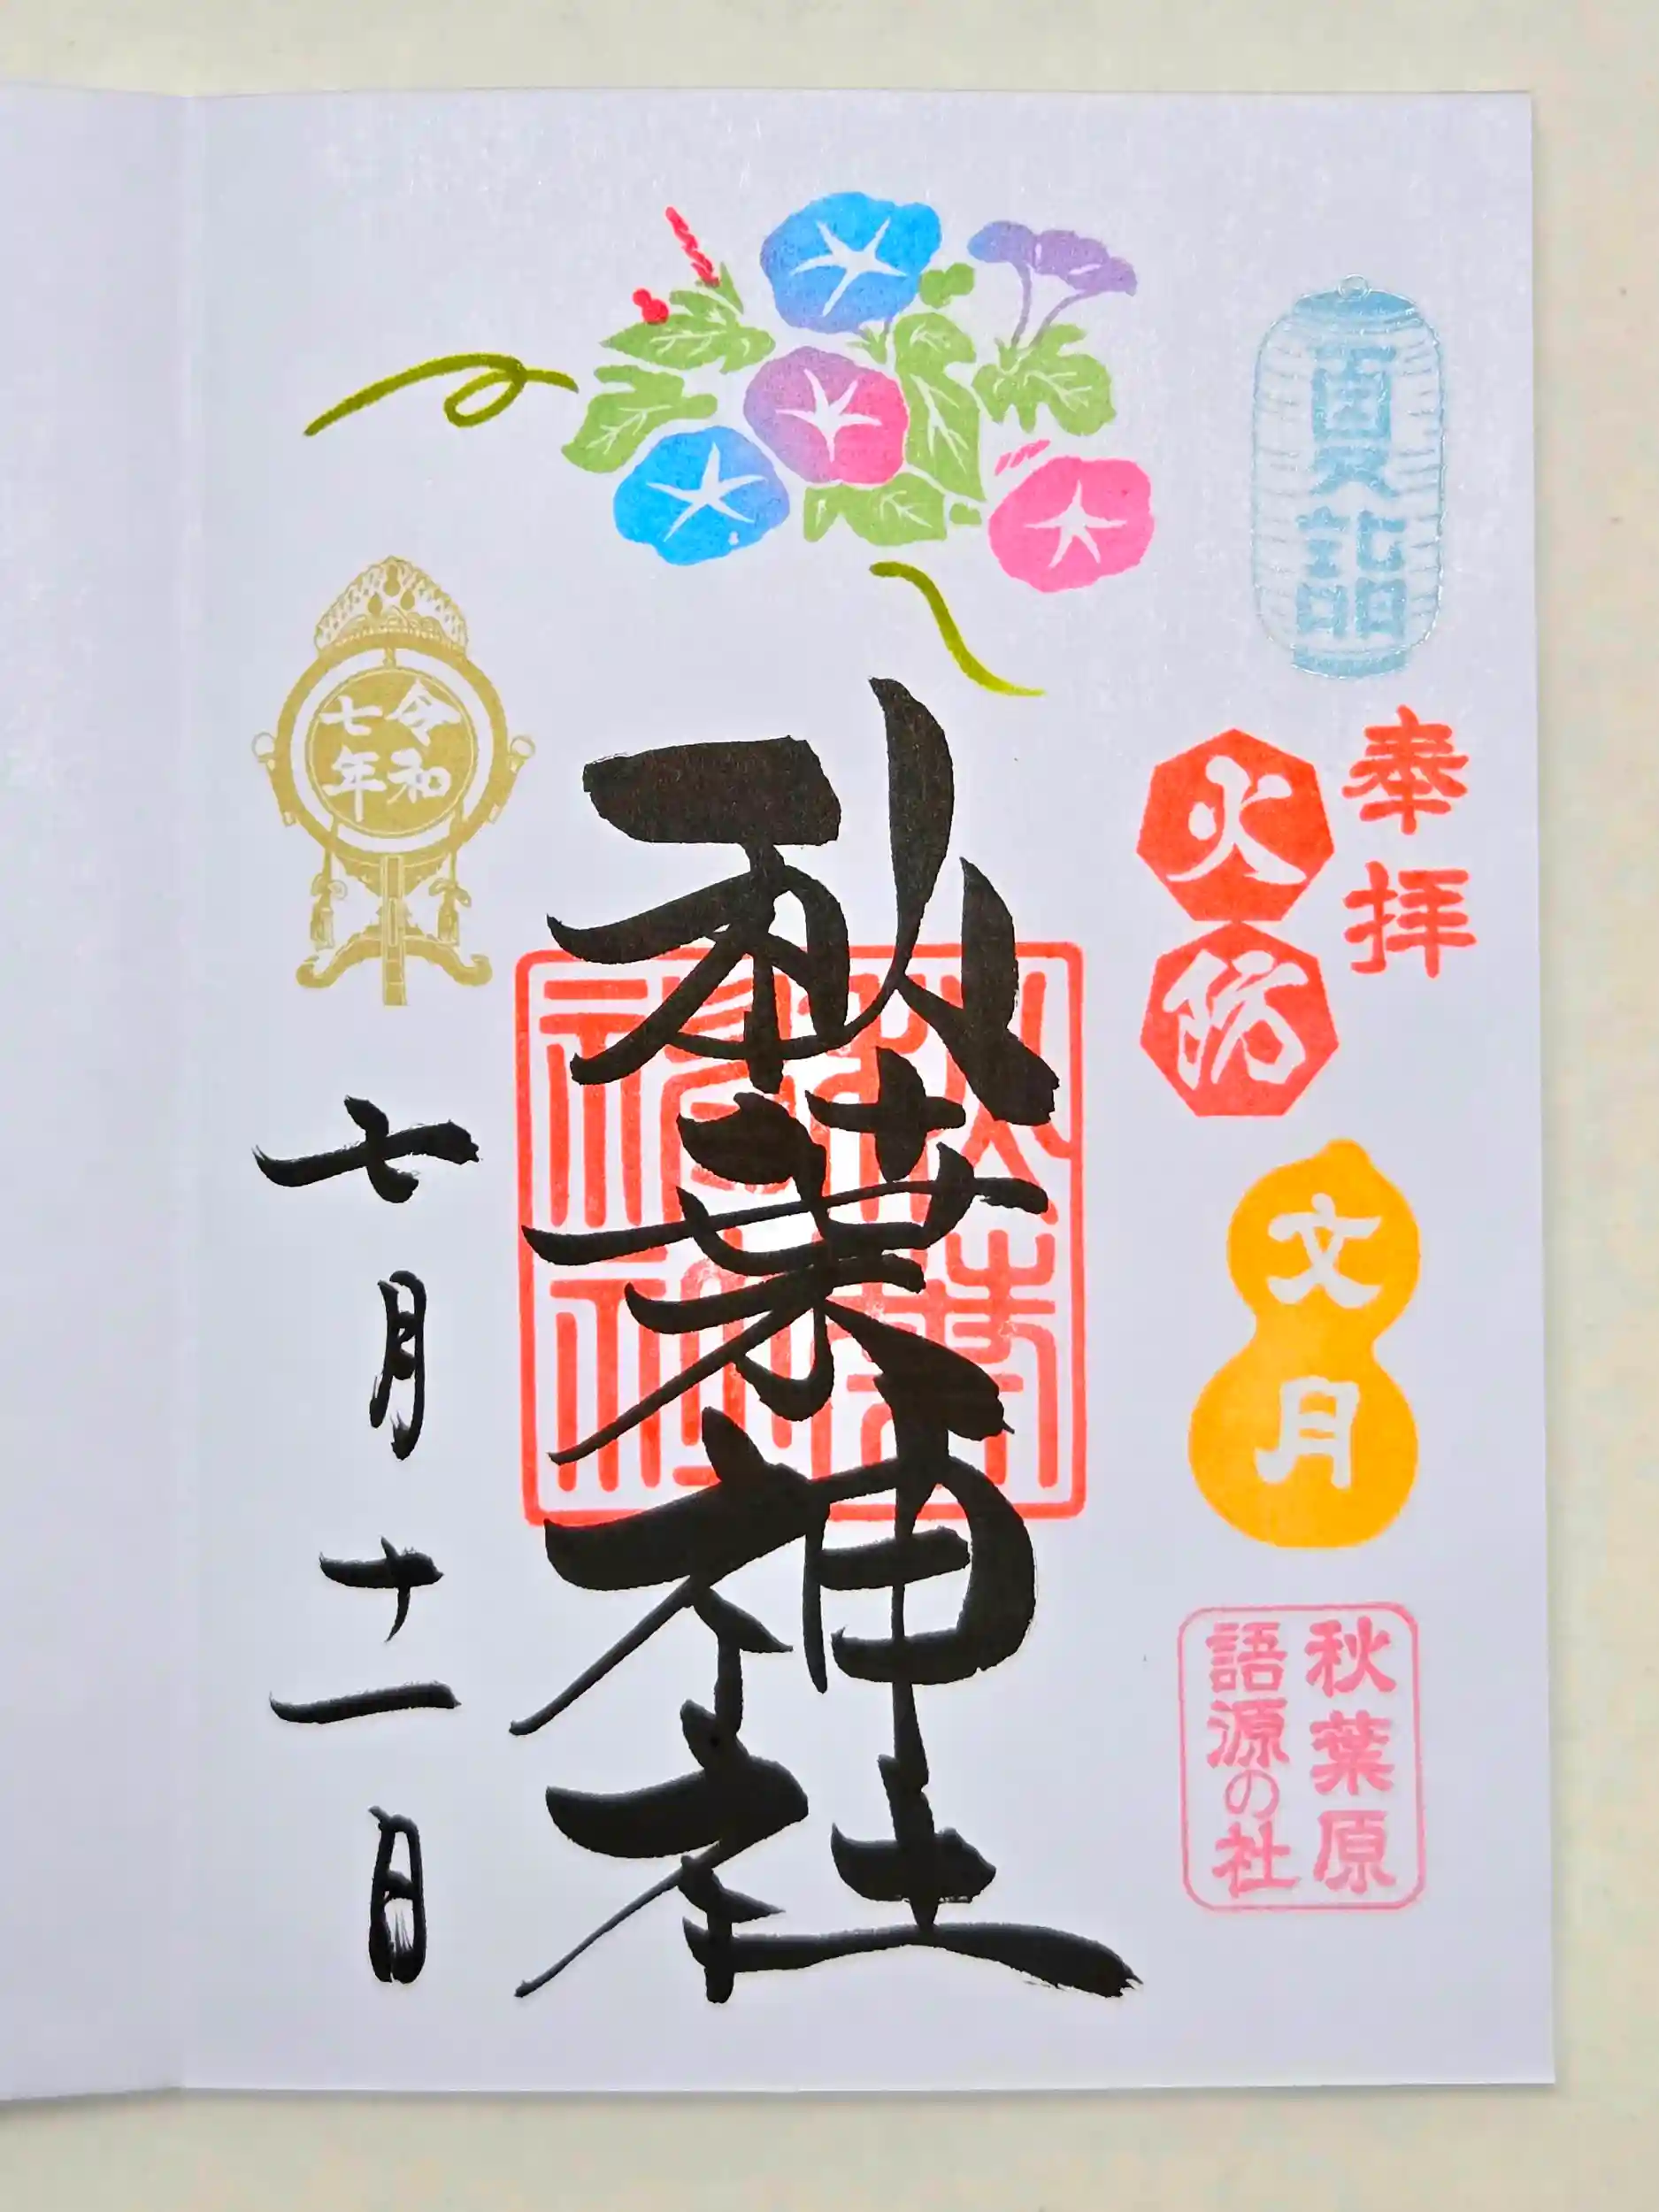 夏詣
奉拝
火防
文月
秋葉原
語源の社
秋葉神社
秋葉
神社
令和
七年
七月十一日